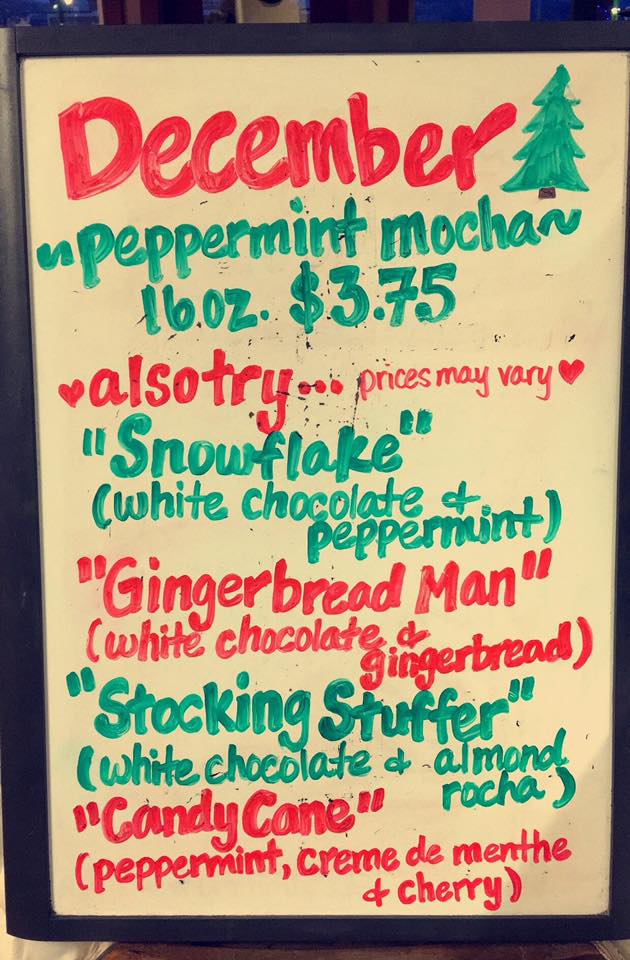 December
~peppermint mocha~
16oz. $3.75
♥also try... prices may vary♥
"Snowflake"
(white chocolate &
peppermint)
"Gingerbread Man"
(white chocolate &
gingerbread)
"Stocking Stuffer"
(white chocolate & almond
rocha)
"Candy Cane"
(peppermint, creme de menthe
& cherry)